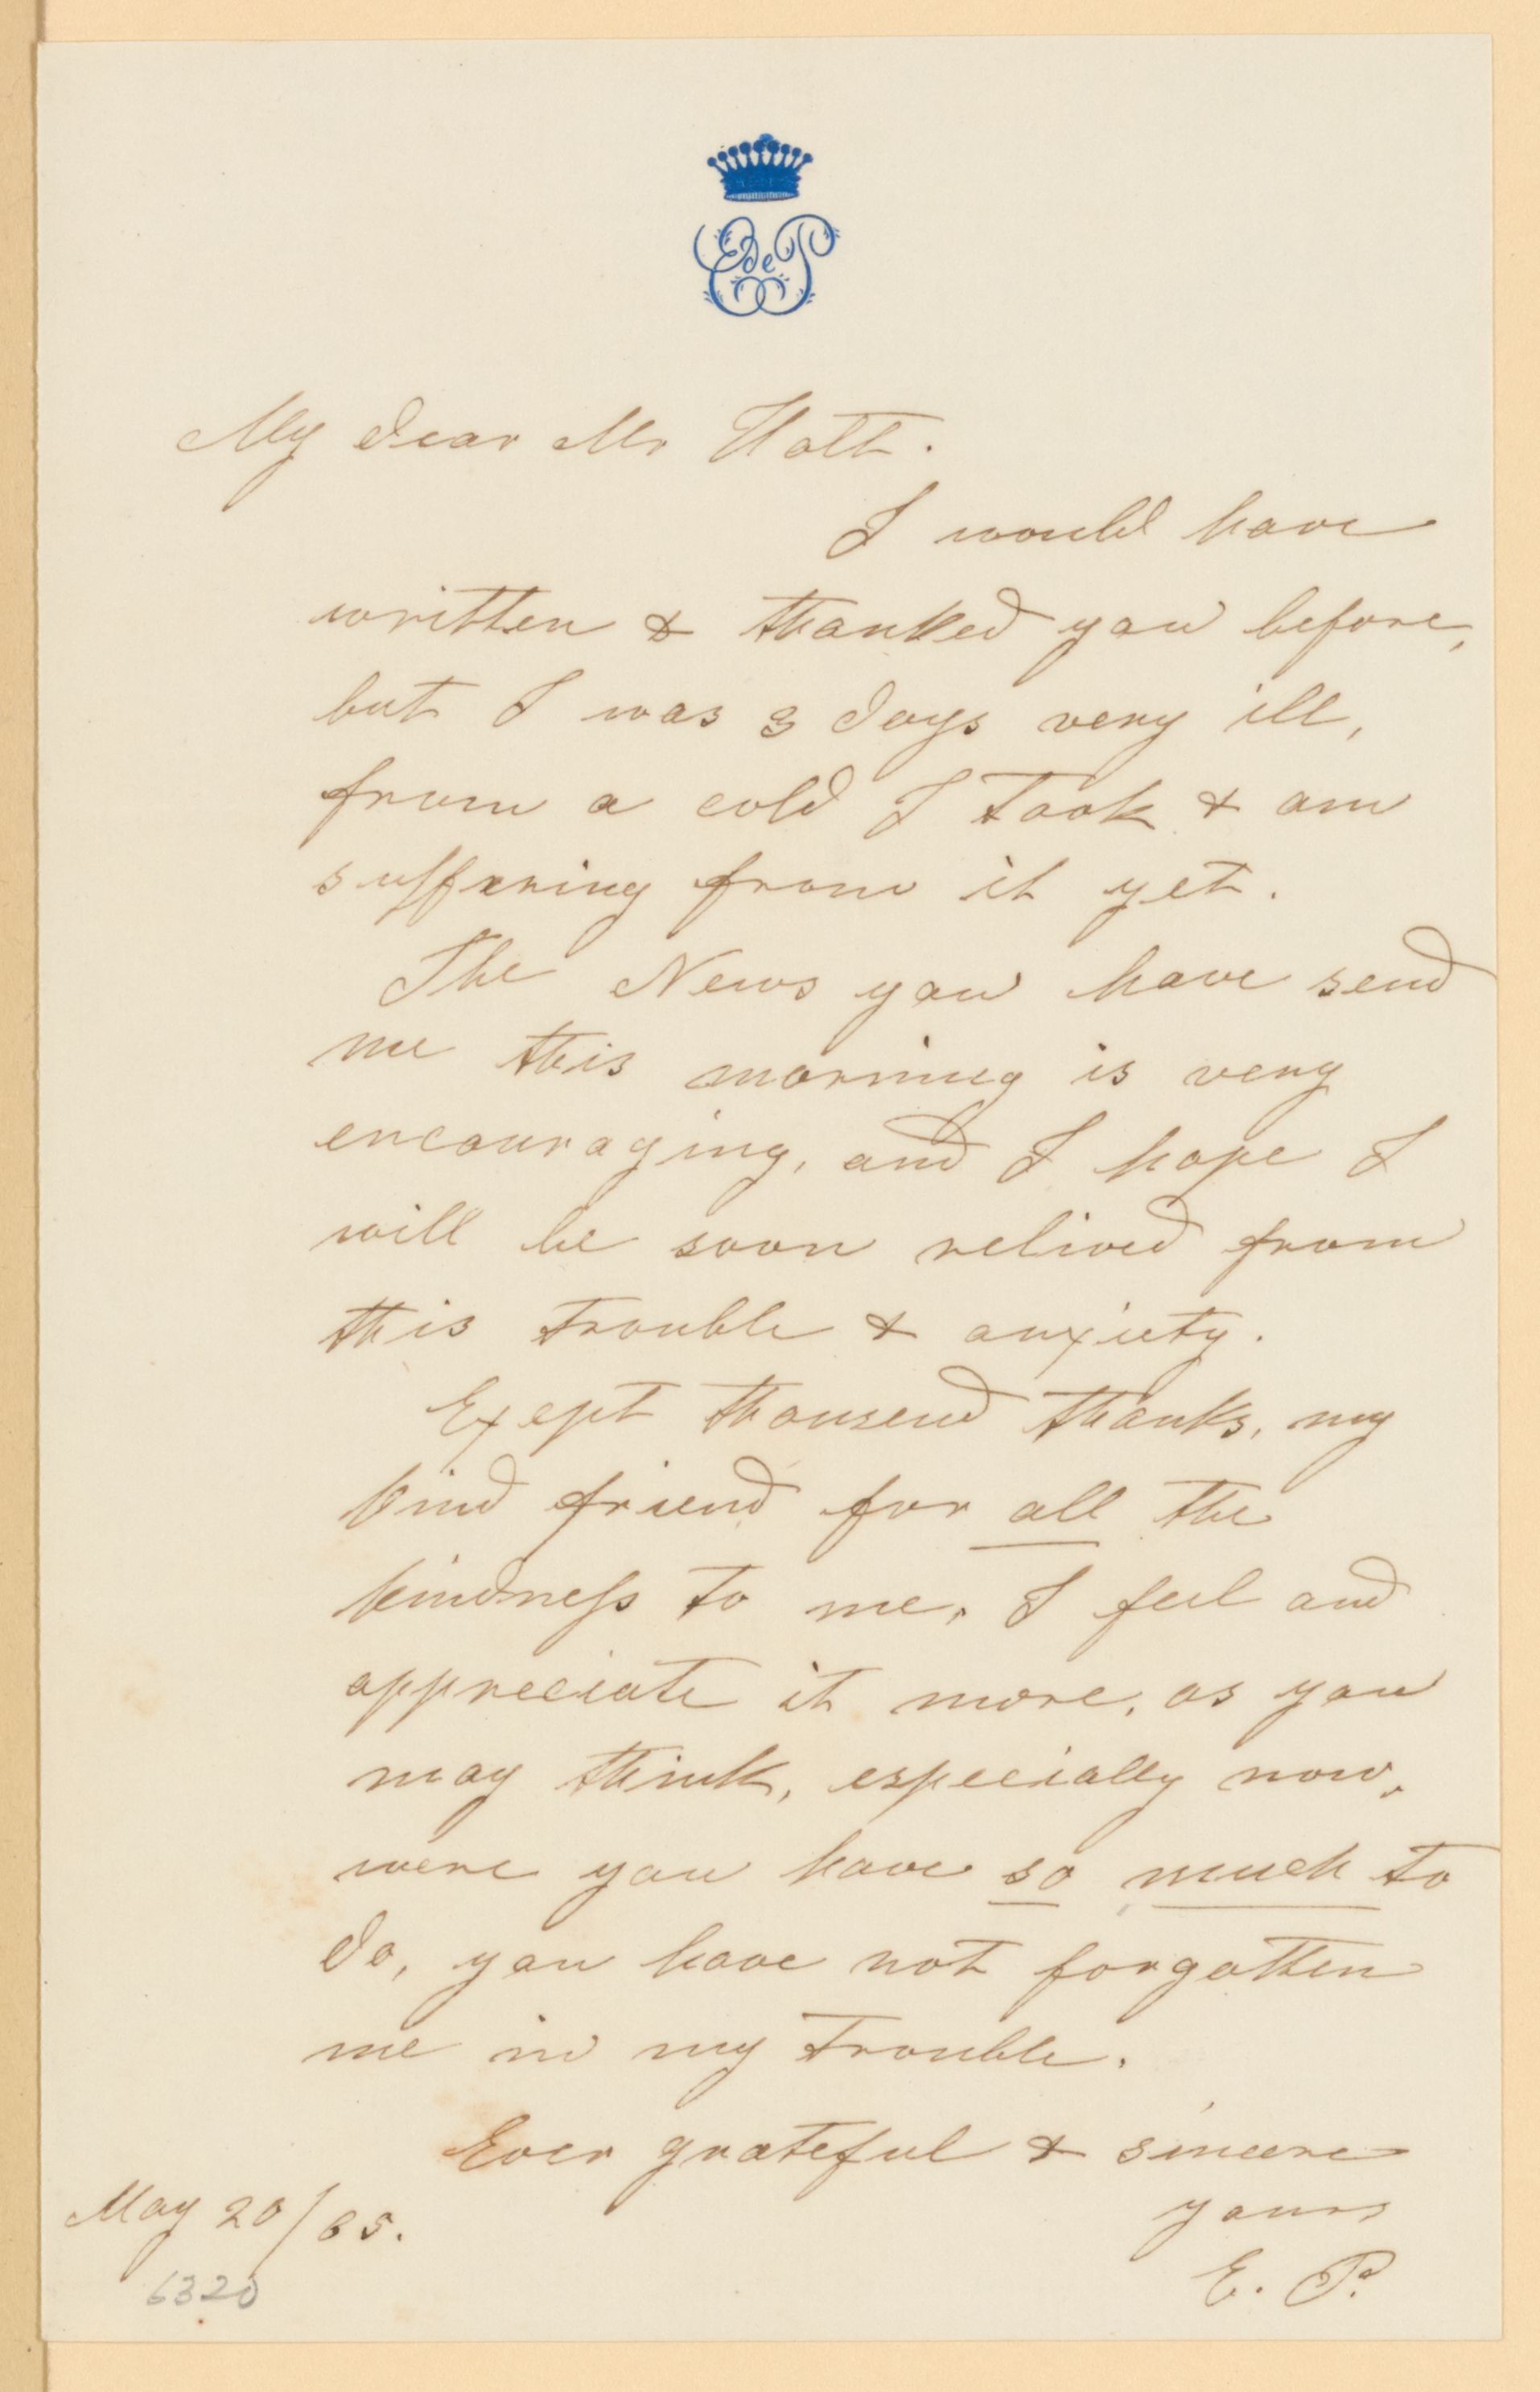 E de P
My dear Mr Holt.
I would have
written & thanked you before,
but I was 3 days very ill,
from a cold I took & am
suffering from it yet.
The News you have send
me this morning is very
encouraging, and I hope I
will be soon relived from
this trouble & anxiety.
Exept thousend thanks, my
kind friend for all the
kindness to me, I feel and
appreciate it more, as you
may think, especially now,
were you have so much to
do, you have not forgotten
me in my trouble.
Ever grateful & sincere
yours
E. P.
May 20/65.
6320